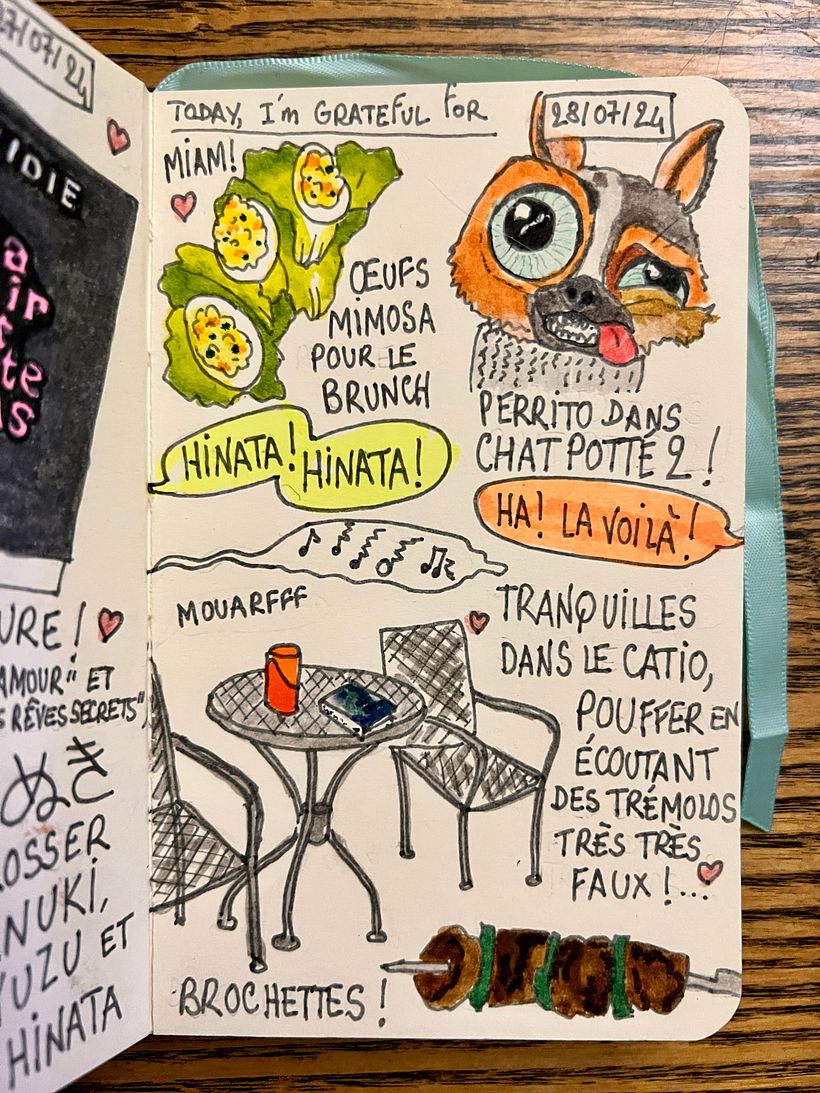 27/07/24
IDIE
URE !
AMOUR" ET
RÊVES SECRETS",
ぬき
OSSER
NUKI,
YUZU ET
HINATA
TODAY, I'm GRATEFUL FOR
28/07/24
MIAM!
ŒUFS
MIMOSA
POUR LE
BRUNCH
PERRITO DANS
CHAT POTTÉ 2 !
HINATA! HINATA!
HA! LA VOILÀ!
MOUARFFF
TRANQUILLES
DANS LE CATIO,
POUFFER EN
ÉCOUTANT
DES TRÉMOLOS
TRÈS TRÈS
FAUX !...
BROCHETTES !